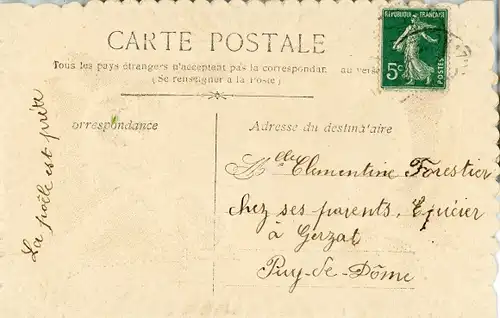 CARTE POSTALE
Tous les pays étrangers n'acceptent pas la correspondan au verso
(Se renseigner à la Poste)
RÉPUBLIQUE FRANÇAISE
5c
POSTES
orrespondance
Adresse du destina'aire
La poêle est prête
Mlle Clementine Forestier
chez ses parents, Epicier
à Gerzat
Puy-de-Dôme